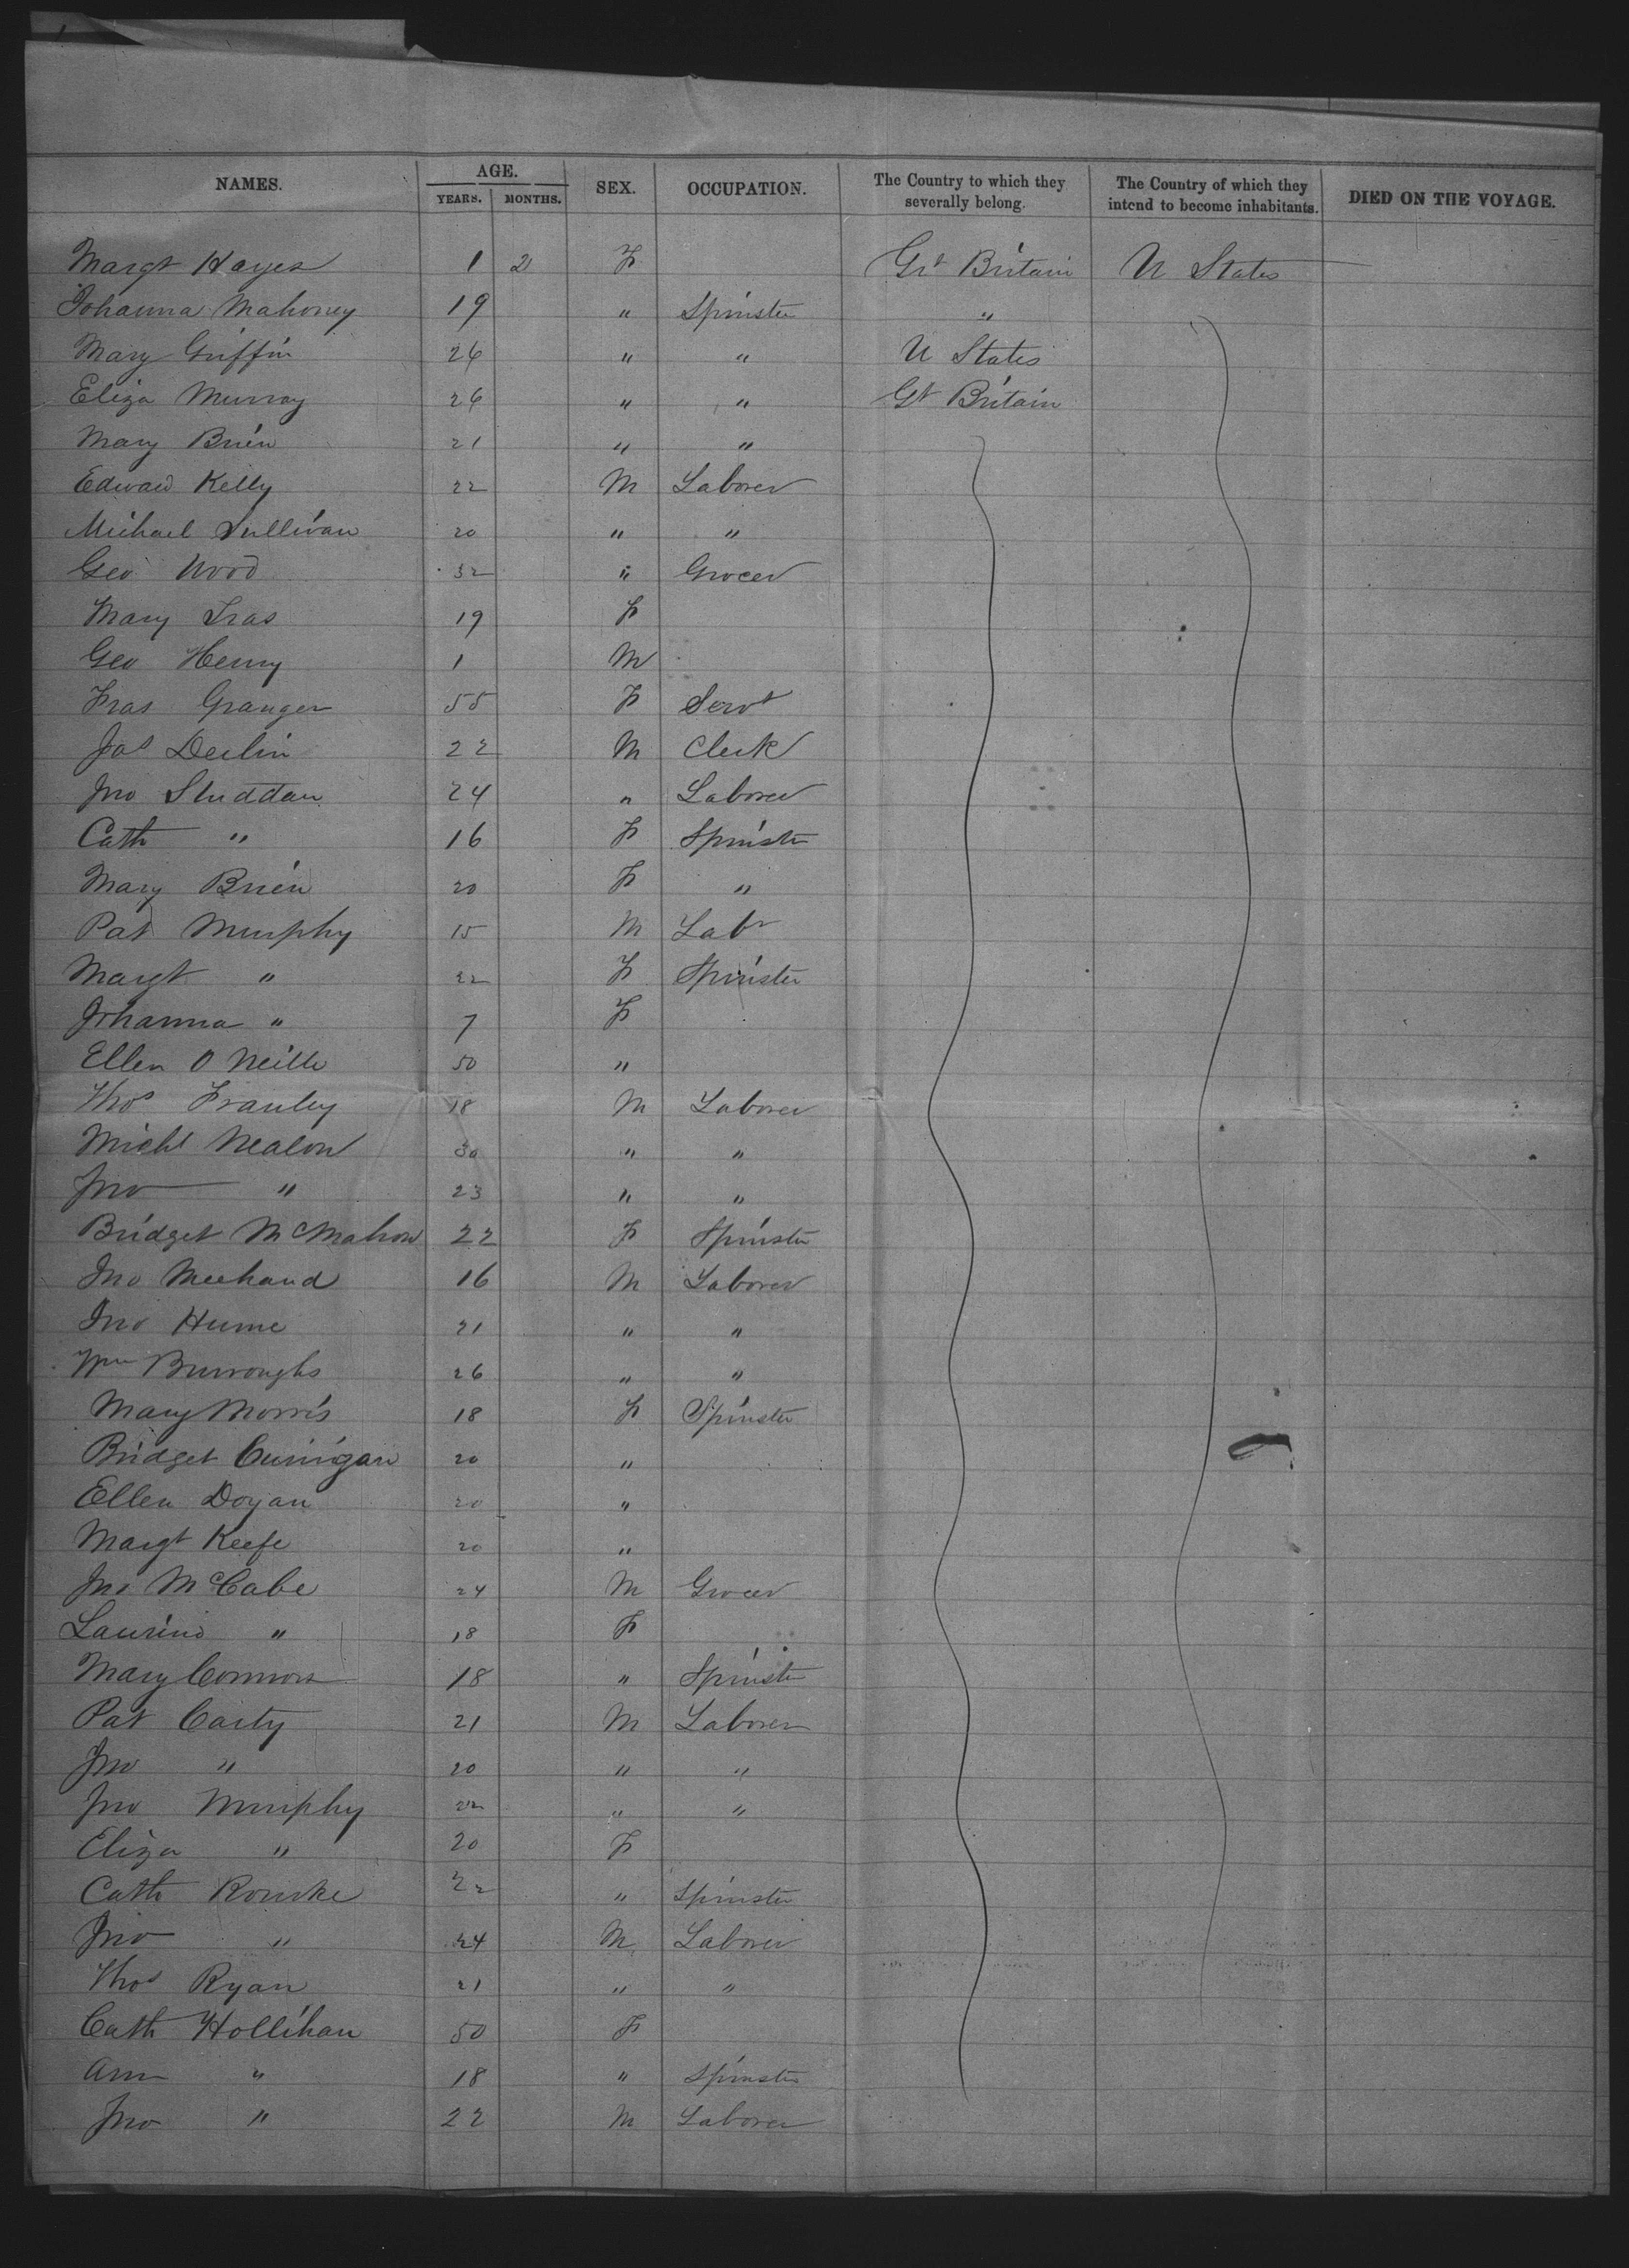 NAMES. AGE. YEARS. MONTHS. SEX. OCCUPATION. The Country to which they severally belong. The Country of which they intend to become inhabitants. DIED ON THE VOYAGE.
Margt Hayes 1 2 F Gt Britain U States
Johanna Mahoney 19 " Spinster "
Mary Griffin 26 " " U States
Eliza Murray 26 " " Gt Britain
Mary Brien 21 " "
Edward Kelly 22 M Laborer
Michael Sullivan 20 " "
Geo Wood 32 " Grocer
Mary Fras 19 F
Geo Henry 1 M
Fras Granger 55 F Servt
Jas Devlin 22 M Clerk
Jno Studdan 24 " Laborer
Cath " 16 F Spinster
Mary Brien 20 F "
Pat Murphy 15 M Labr
Margt " 22 F Spinster
Johanna " 7 F
Ellen O Neille 50 "
Thos Frauley 18 M Laborer
Michl Nealon 30 " "
Jno " 23 " "
Bridget McMahon 22 F Spinster
Jno Meehand 16 M Laborer
Jno Hume 21 " "
Wm Burroughs 26 " "
Mary Morris 18 F Spinster
Bridget Cunigan 20 "
Ellen Dogan 20 "
Margt Keefe 20 "
Jno McCabe 24 M Grocer
" 18 F
Mary Connors 18 " Spinster
Pat Carty 21 M Laborer
Jno " 20 " "
Jno Murphy 22 " "
Eliza " 20 F
Cath Rourke 22 " Spinster
Jno " 24 M Laborer
Thos Ryan 21 " "
Cath Hollihan 50 F
Ann " 18 " Spinster
Jno " 22 M Laborer